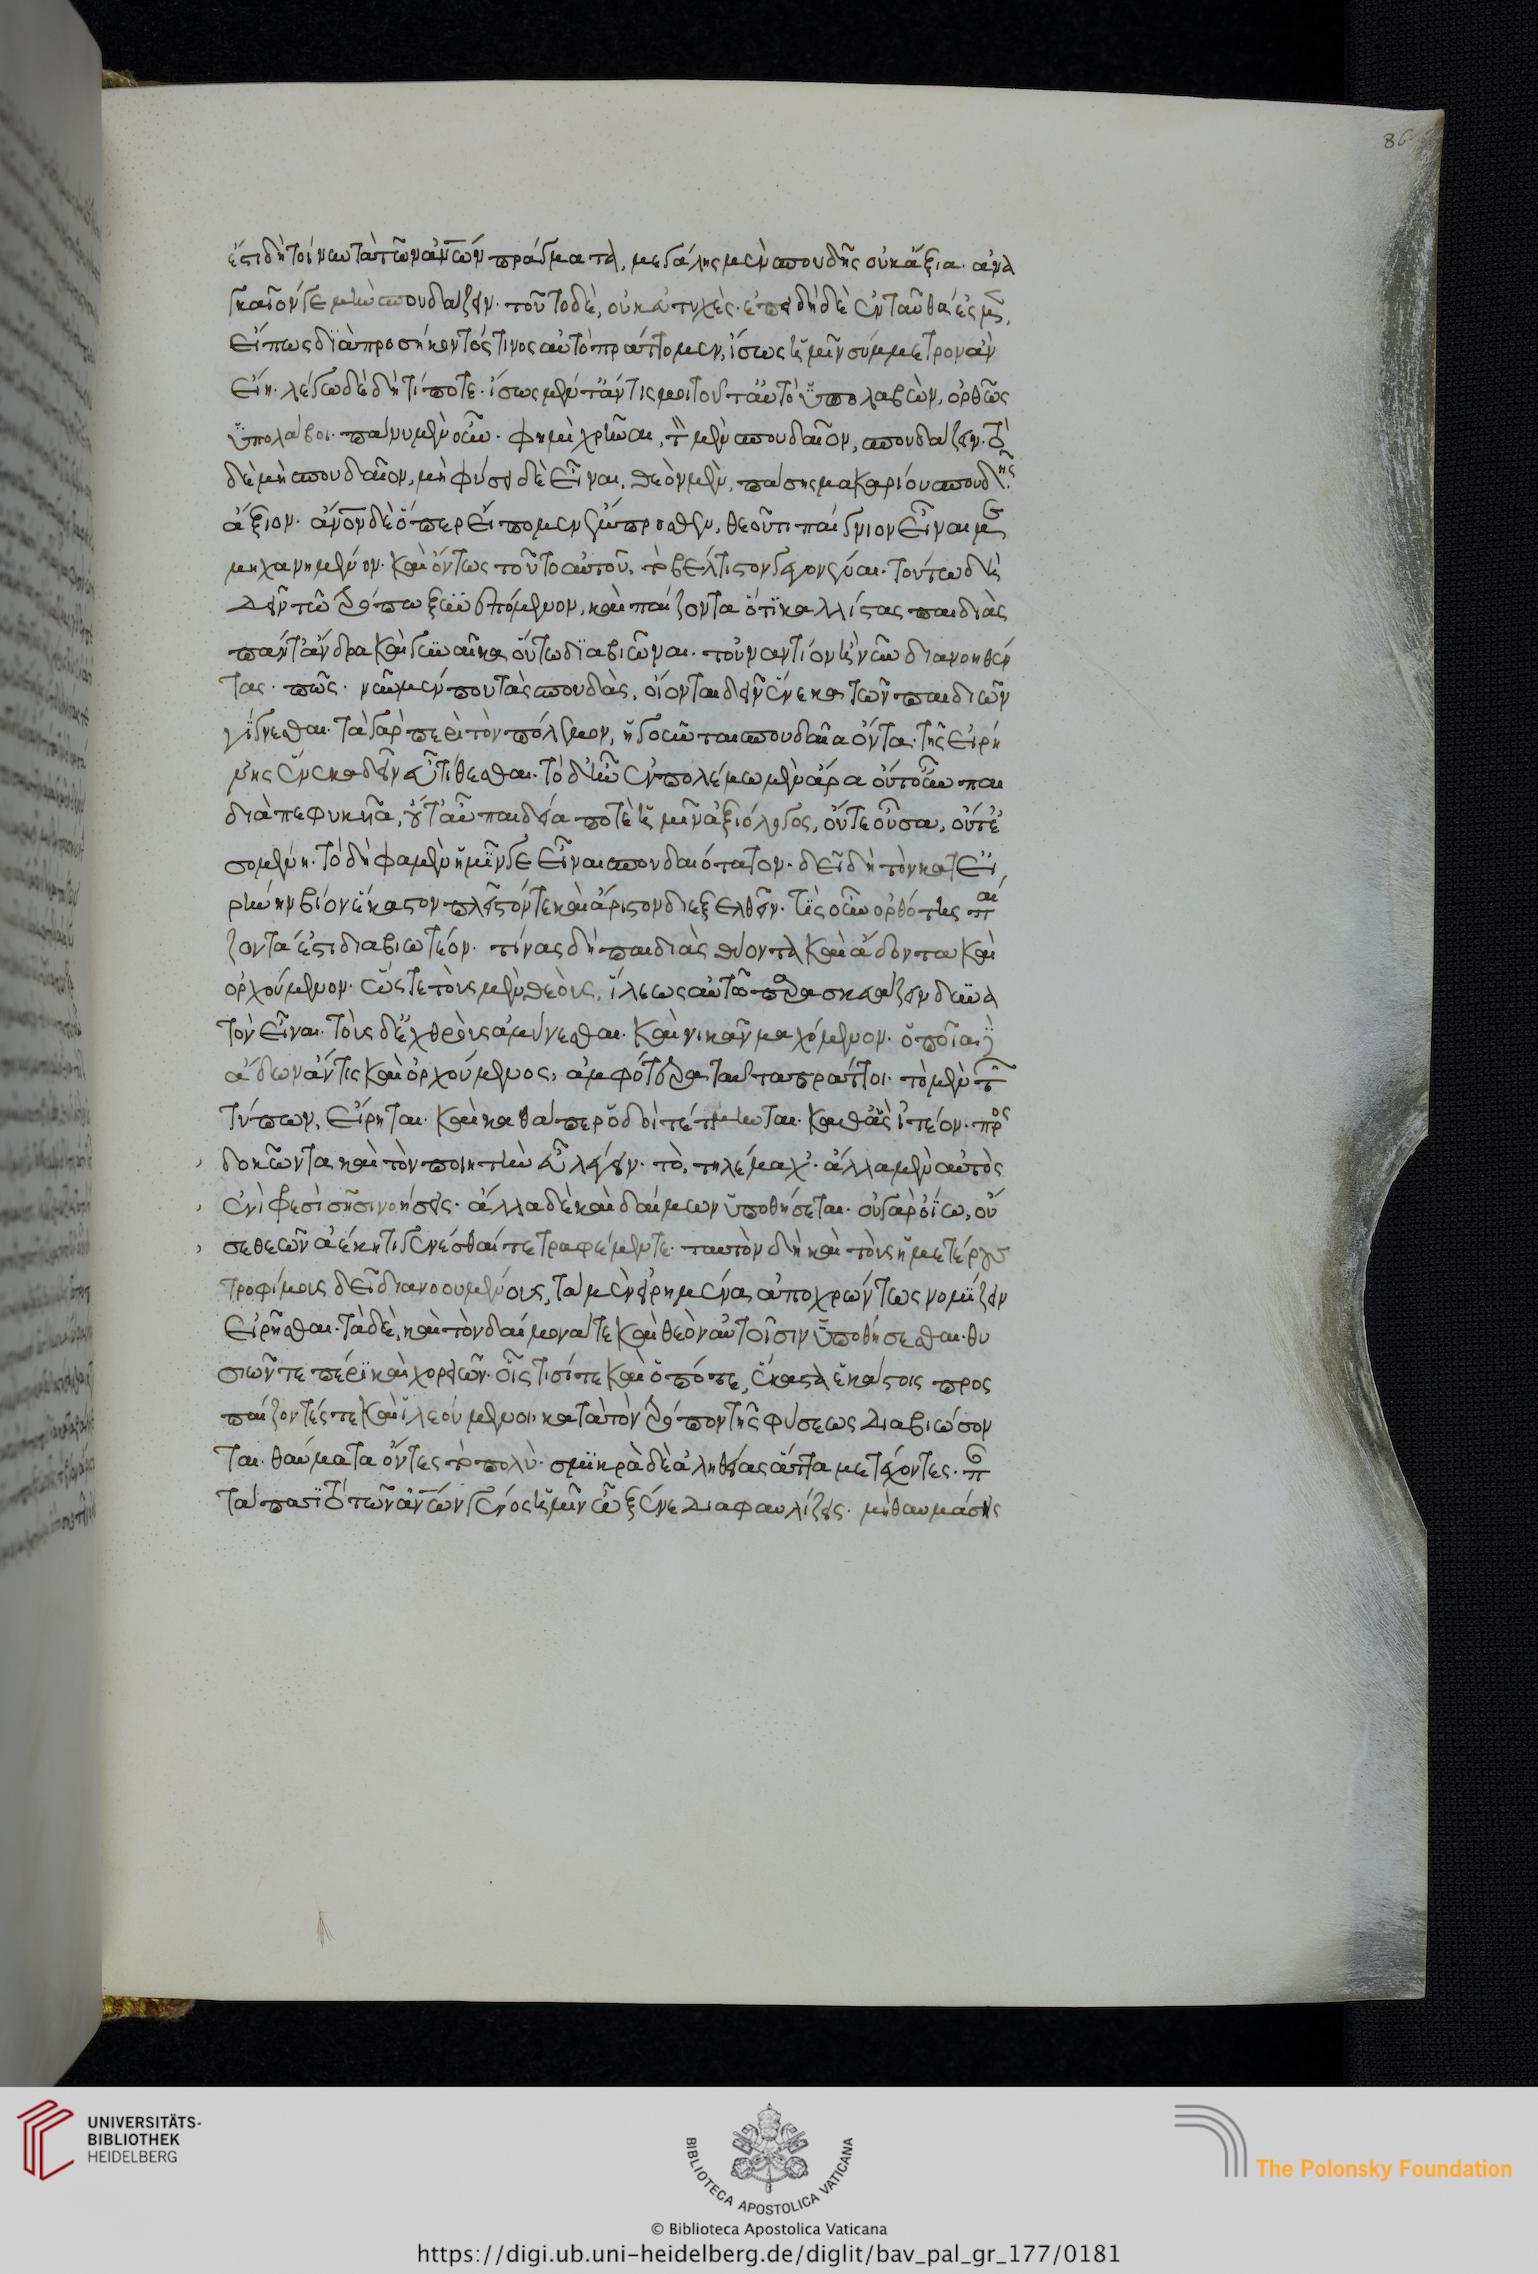 ἔστι δὴ τοίνυν τὰ τῶν ἀνων πράγματα, μεγάλης μὲν σπουδῆς οὐκ ἄξια· ἀνα
γκαῖόν γε μὴν σπουδάζειν· τοῦτο δὲ, οὐκ εὐτυχὲς· ἐπειδὴ δὲ ἐνταῦθά ἐσμεν,
εἴ πως διὰ προσήκοντός τινος αὐτὸ πράττομεν, ἴσως ἡμῖν σύμμετρον ἂν
εἴη· λέγω δὲ δὴ τί ποτε· ἴσως μὲν τἄν τίς μοι τοῦτ' αὐτὸ ὑπολαβὼν, ὀρθῶς
ὑπολάβοι· πάνυ μὲν οὖν· φημὶ χρῆναι, τὸ μὲν σπουδαῖον, σπουδάζειν· τὸ
δὲ μὴ σπουδαῖον, μὴ φύσει δὲ εἶναι, θεὸν μὲν, πάσης μακαρίου σπουδῆς
ἄξιον· ἀνον δὲ ὅπερ εἴπομεν ἔμπροσθεν, θεοῦ τι παίγνιον εἶναι με
μηχανημένον· καὶ ὄντως τοῦτο αὐτοῦ, τὸ βέλτιστον γεγονέναι· τούτω δὴ
δεῖν τῶ τρόπω ξυνεπόμενον, καὶ παίζοντα ὅτι καλλίστας παιδιὰς
πάντ' ἄνδρα καὶ γυναῖκα οὕτω διαβιῶναι· τοὐναντίον ἢ νῦν διανοηθέν
τας· πῶς· νῦν μέν που τὰς σπουδὰς, οἴονται δεῖν ἕνεκα τῶν παιδιῶν
γίγνεσθαι· τὰ γὰρ περὶ τὸν πόλεμον, ἡγοῦνται σπουδαῖα ὄντα· τῆς εἰρή
νης ἕνεκα δεῖν εὖ τίθεσθαι· τὸ δ' ἦν ἐν πολέμω μὲν ἄρα οὔτ' οὖν παι
διὰ πεφυκυῖα, οὔτ' αὖ παιδεία ποτὲ ἡμῖν ἀξιόλογος, οὔτε οὖσα, οὔτ' ἐ
σομένη· τὸ δή φαμεν ἡμῖν γε εἶναι σπουδαιότατον· δεῖ δὴ τὸν κατ' εἰ
ρήνην βίον ἕκαστον πλεῖστόν τε καὶ ἄριστον διεξελθεῖν· τίς οὖν ὀρθότης παί
ζοντά ἐστι διαβιωτέον· τίνας δὴ παιδιὰς θύοντα καὶ ἄδοντα καὶ
ὀρχούμενον· ὥστε τοὺς μὲν θεοὺς, ἵλεως αὐτῶ παρασκευάζειν δυνα
τὸν εἶναι· τοὺς δ' ἐχθροὺς ἀμύνεσθαι· καὶ νικᾶν μαχόμενον· ὁποῖα δὲ
ἄδων ἄν τις καὶ ὀρχούμενος, ἀμφότερα ταῦτα πράττοι· τὸ μὲν τῶν
τύπων, εἴρηται· καὶ καθάπερ ὁδοὶ τέτμηνται· καθ' ἃς ἰτέον· προσ
δοκῶντα καὶ τὸν ποιητὴν εὖ λέγειν· τὸ, τηλέμαχ'· ἄλλα μὲν αὐτὸς
ἐνὶ φρεσὶ σῆσι νοήσεις· ἄλλα δὲ καὶ δαίμων ὑποθήσεται· οὐ γὰρ ὀΐω, οὔ
σε θεῶν ἀέκητι γενέσθαί τε τραφέμεν τε· ταυτὸν δὴ καὶ τοὺς ἡμετέρους
τροφίμους δεῖ διανοουμένους, τὰ μὲν εἰρημένα ἀποχρώντως νομίζειν
εἰρῆσθαι· τὰ δὲ, καὶ τὸν δαίμονά τε καὶ θεὸν αὐτοῖσιν ὑποθήσεσθαι· θυ
σιῶν τε πέρι καὶ χορειῶν· οἷς τισί τε καὶ ὁπότε, ἕκαστα ἑκάστοις προς
παίζοντές τε καὶ ἱλεούμενοι· κατὰ τὸν τρόπον τῆς φύσεως διαβιώσον
ται· θαύματα ὄντες τὸ πολὺ· σμικρὰ δὲ ἀληθείας ἄττα μετέχοντες· παν
τάπασι τὸ τῶν ἀνων γένος ἡμῖν ὦ ξένε διαφαυλίζεις· μὴ θαυμάσης
86
UNIVERSITÄTS-
BIBLIOTHEK
HEIDELBERG
BIBLIOTECA APOSTOLICA VATICANA
The Polonsky Foundation
© Biblioteca Apostolica Vaticana
https://digi.ub.uni-heidelberg.de/diglit/bav_pal_gr_177/0181